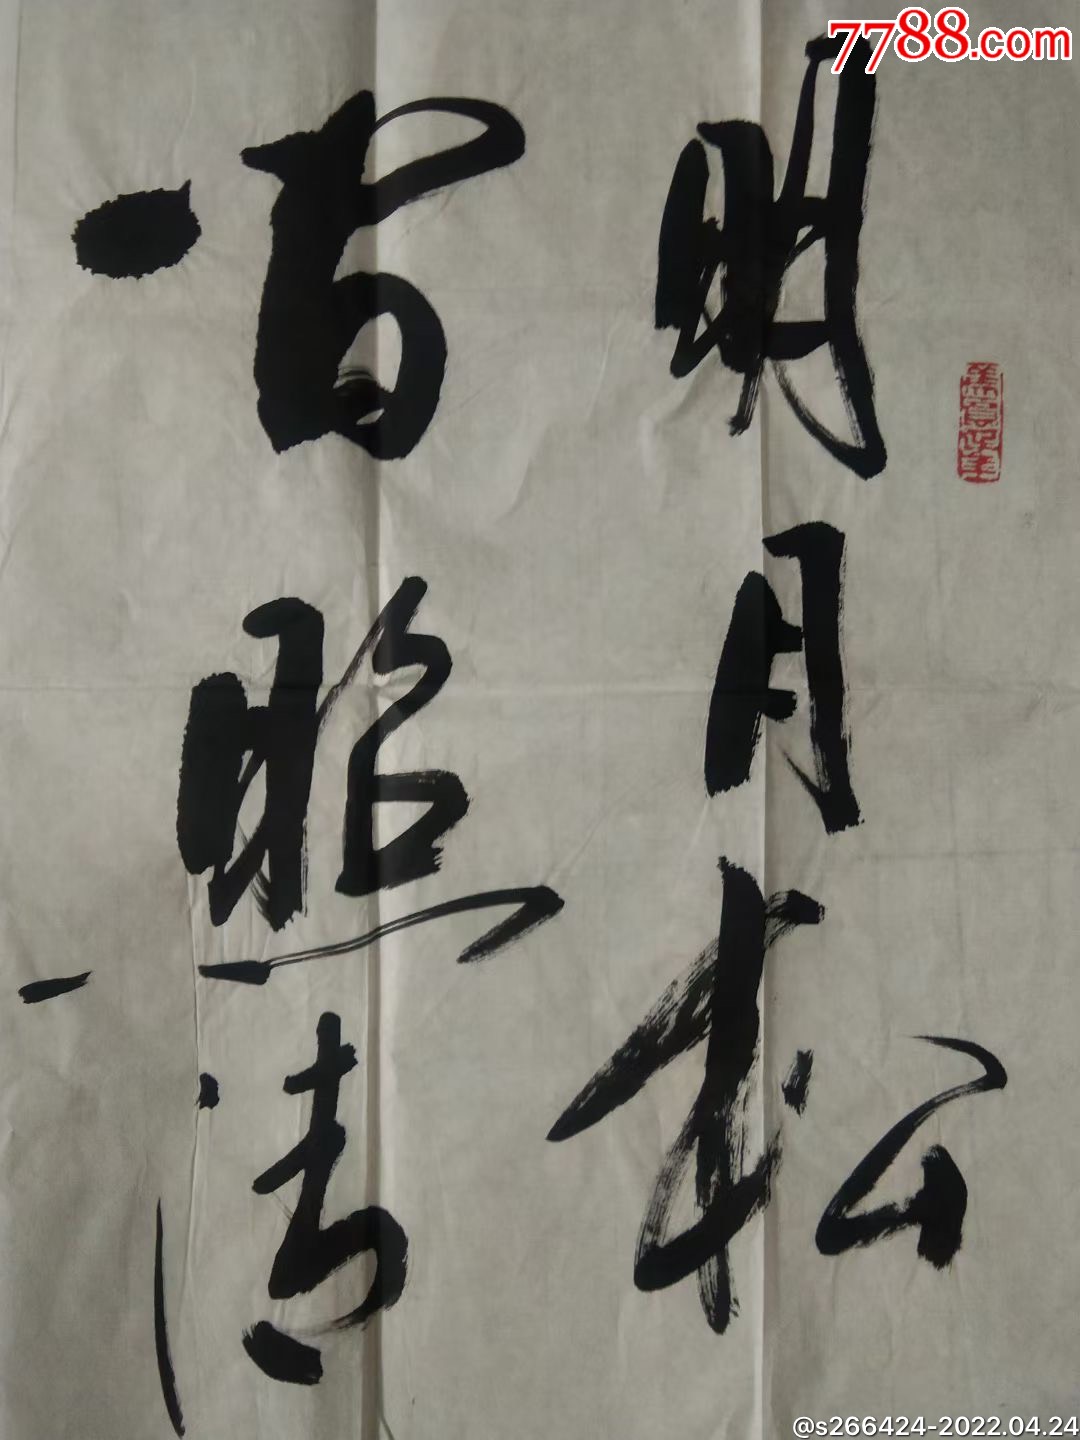 明月松
间照清
7788.com
@s266424-2022.04.24